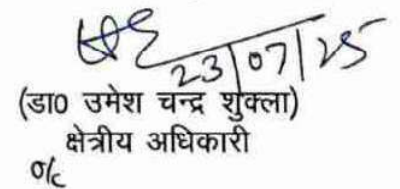 23/07/25
(डा0 उमेश चन्द्र शुक्ला)
क्षेत्रीय अधिकारी
o/c